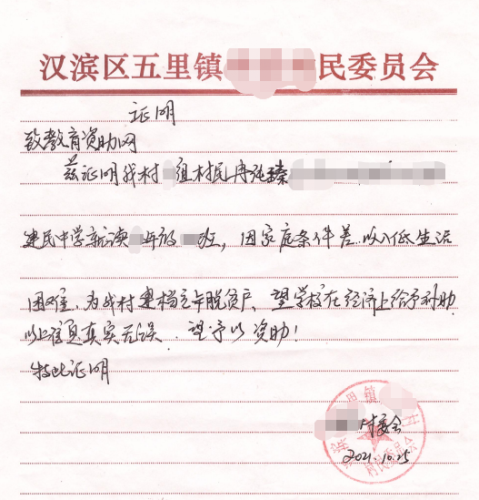 汉滨区五里镇 民委员会
证明
致教育资助网
兹证明我村 组村民
建民中学就读 年级 班，因家庭条件差收入低生活
困难，为我村建档立卡脱贫户，望学校在经济上给予补助
以上信息真实无误，望予以资助！
特此证明
村委会
2021.10.25